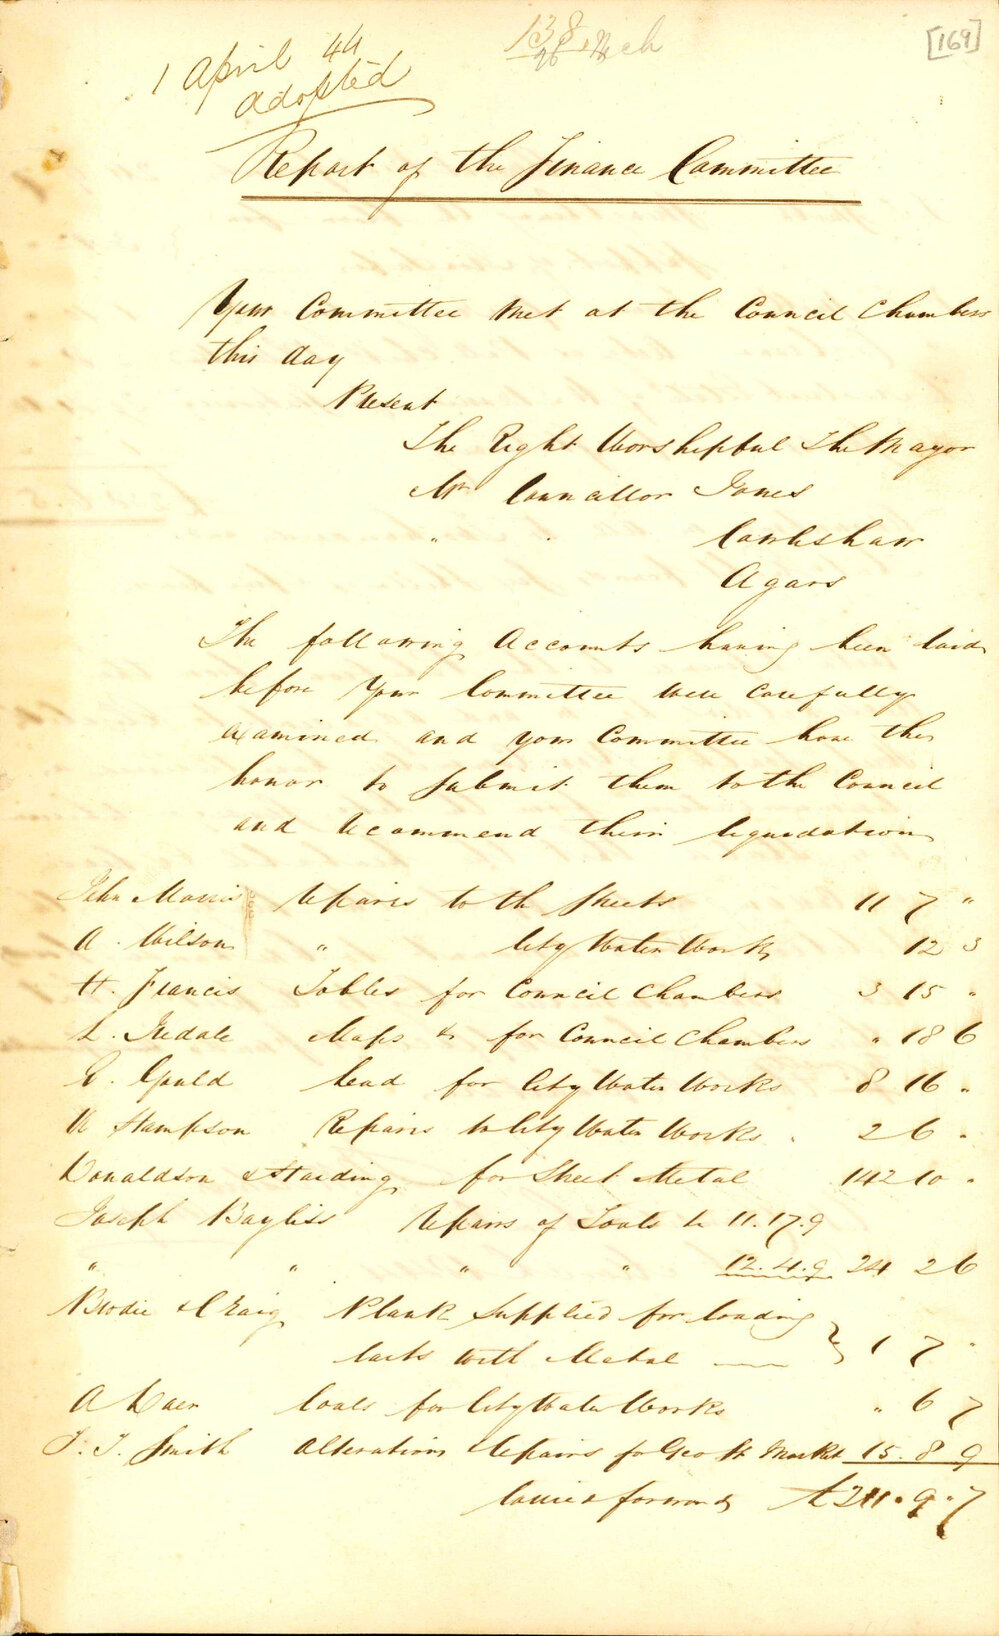 1 April 44
adopted
138
26 Mch
[169]
Report of the Finance Committee
Your Committee met at the Council Chambers
this day
Present
The Right Worshipful The Mayor
Mr Councillor Jones
" " Cowlishaw
Agars
The following Accounts having been laid
before Your Committee were carefully
examined and your Committee have the
honor to submit them to the Council
and recommend their liquidation
John Morris repairs to the Streets 11 7 "
A. Wilson " City Water Works 12 3
H. Francis Tables for Council Chambers 3 15 "
L. Iredale Maps &c for Council Chambers " 18 6
E. Gould Lead for City Water Works 8 16 "
W Stampson Repairs to City Water Works 2 6 "
Donaldson & Harding for Street Metal 142 10 "
Joseph Bayliss repairs of Tools &c 11.17.9
" " " " 12.4.9 24 2 6
Brodie & Craig Plank supplied for loading
carts with Metal 1 7 "
A Coals for City Water Works " 6 7
J. T. Smith Alterations repairs for Geo St Market 15.8 9
Carried forward £211.9.7